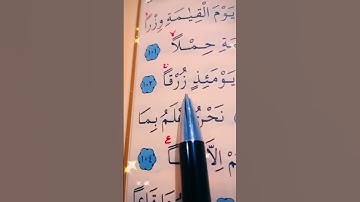 يَوْمَ الْقِيٰمَةِ وِزْرًا
حِمْلًا ١٠١
يَوْمَئِذٍ زُرْقًا ١٠٢
نَحْنُ اَعْلَمُ بِمَا
اِلَّا ١٠٤